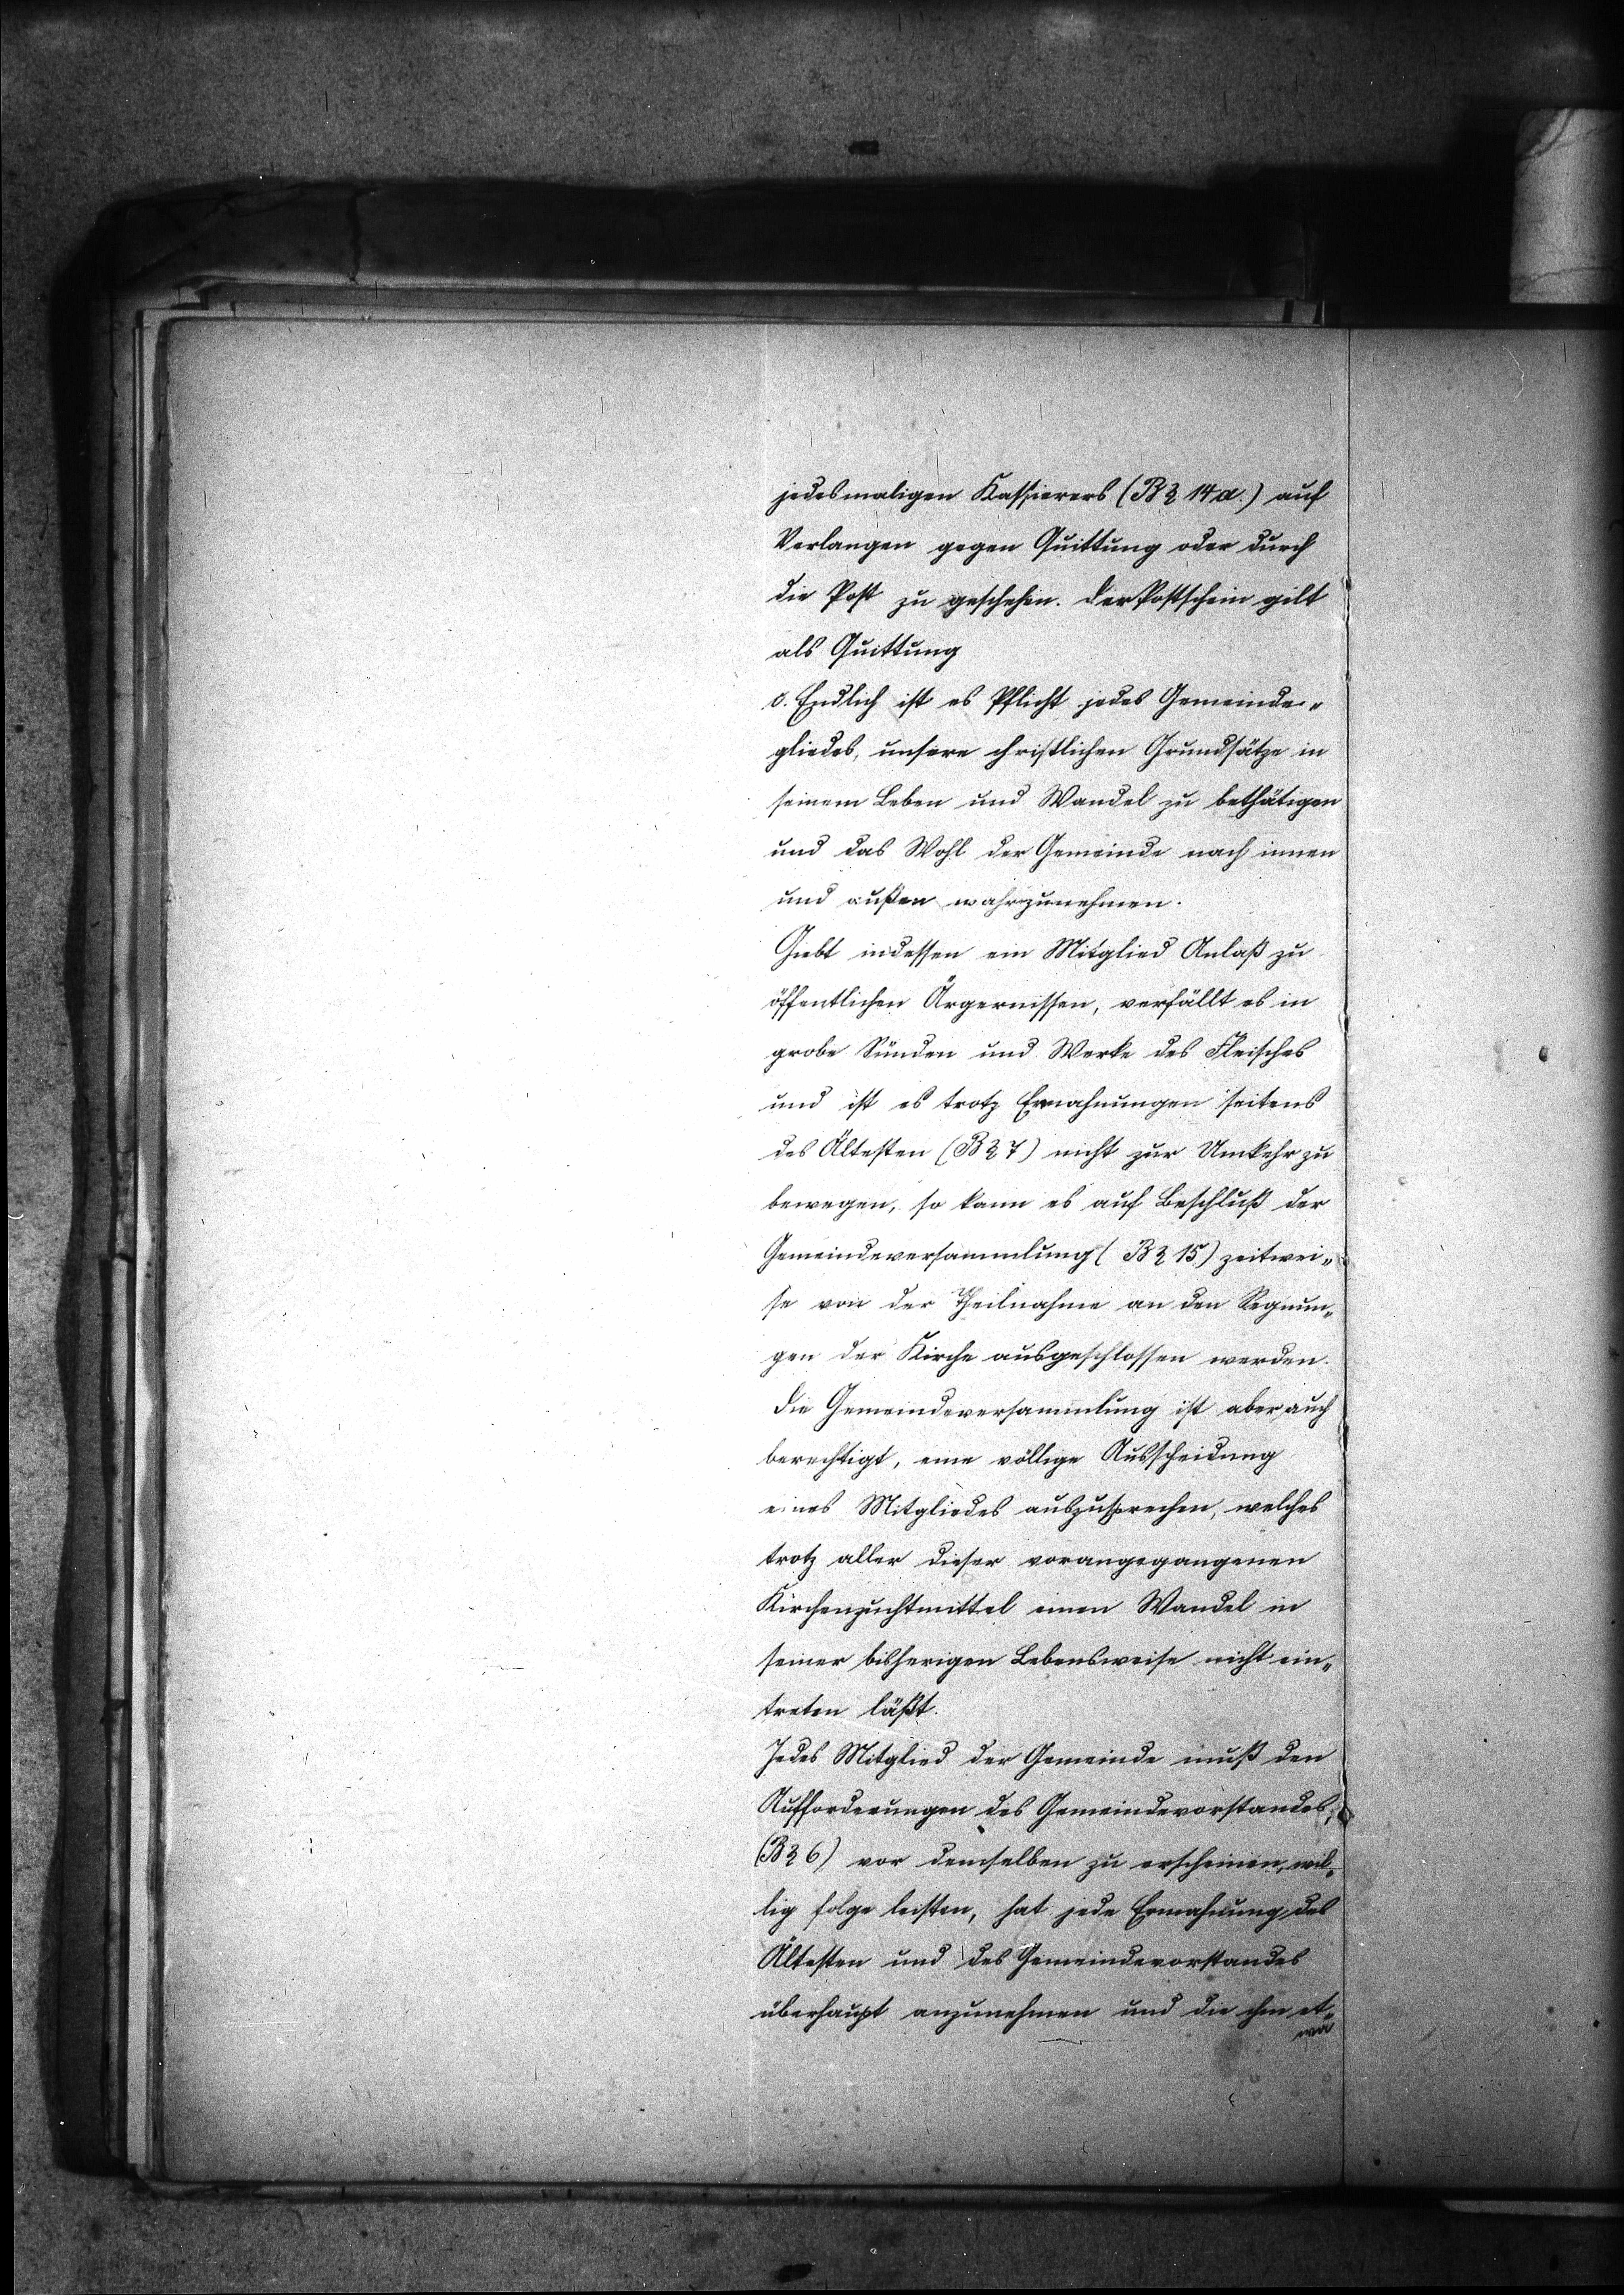 jedesmaligen Kassierers (B § 14a.) auf
Verlangen gegen Quittung oder durch
die Post zu geschehen. Der Postschein gilt
als Quittung
c. Endlich ist es Pflicht jedes Gemeinde-
gliedes, unsere christlichen Grundsätze in
seinem Leben und Wandel zu bethätigen
und das Wohl der Gemeinde nach innen
und außen wahrzunehmen.
Giebt indessen ein Mitglied Anlaß zu
öffentlichen Ärgernissen, verfällt es in
grobe Sünden und Werke des Fleisches
und ist es trotz Ermahnungen seitens
des Ältesten (B § 7) nicht zur Umkehr zu
bewegen, so kann es auf Beschluß der
Gemeindeversammlung (B § 15) zeitwei-
se von der Theilnahme an den Segnun-
gen der Kirche ausgeschlossen werden.
Die Gemeindeversammlung ist aber auch
berechtigt, eine völlige Ausscheidung
eines Mitgliedes auszusprechen, welches
trotz aller dieser vorangegangenen
Kirchenzuchtmittel einen Wandel in
seiner bisherigen Lebensweise nicht ein-
treten läßt.
Jedes Mitglied der Gemeinde muß den
Aufforderungen des Gemeindevorstandes,
(B § 6) vor demselben zu erscheinen, wil-
lig folge leisten, hat jede Ermahnung des
Ältesten und des Gemeindevorstandes
überhaupt anzunehmen und die ihm et-
wa